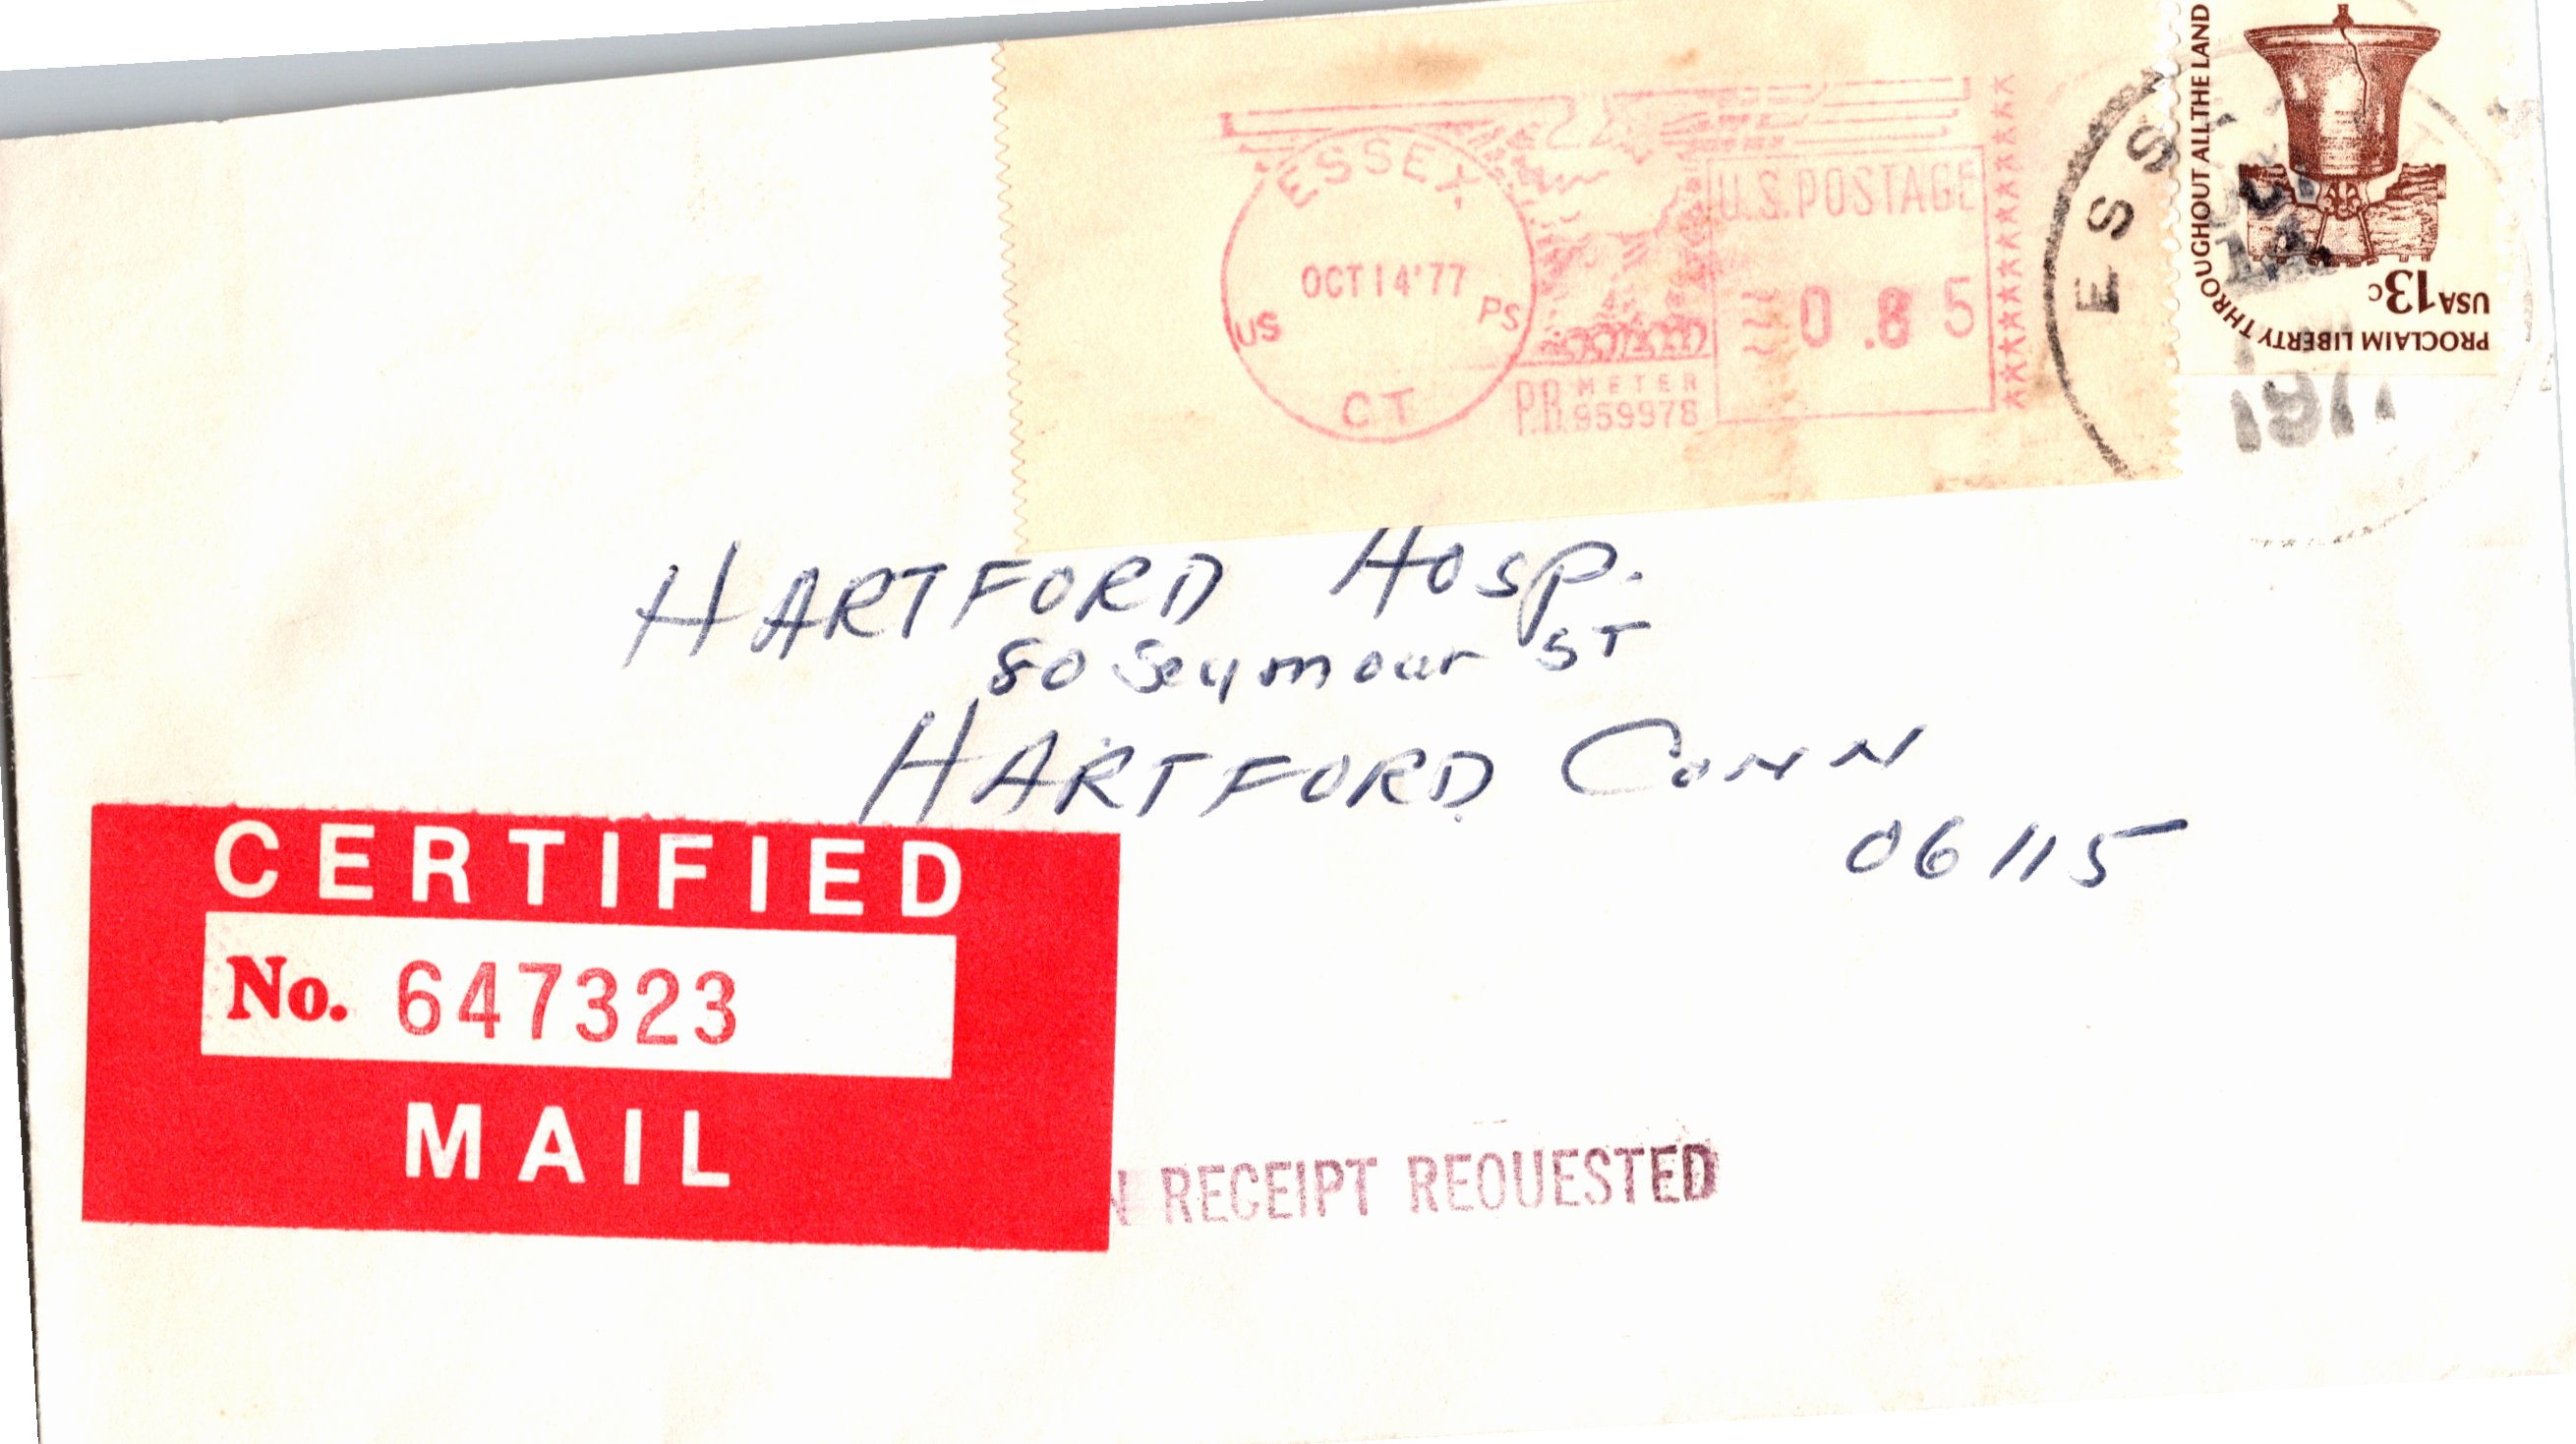 ESSEX
OCT 14 '77
US PS
CT
P.B. METER
959978
U.S. POSTAGE
0.85
ESS
OCT
14
197
PROCLAIM LIBERTY THROUGHOUT ALL THE LAND
USA 13c
HARTFORD HOSP.
80 Seymour ST
HARTFORD CONN
06115
CERTIFIED
No. 647323
MAIL
N RECEIPT REQUESTED